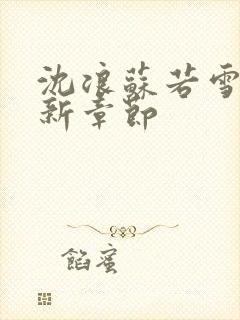 沈浪蘇若雪
新章節
餡蜜